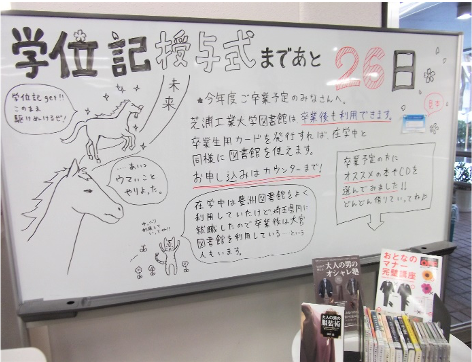 学位記授与式まであと26日
学位記get!!
このまま
駆けぬけるぜ!
未来
★今年度ご卒業予定のみなさんへ。
芝浦工業大学図書館は卒業後も利用できます。
卒業生用カードを発行すれば、在学中と
同様に図書館を使えます。
お申し込みはカウンターまで!
あいつ
ウマいこと
やりよった。
在学中は豊洲図書館をよく
利用していたけど埼玉県内に
就職したので卒業後は大宮
図書館を利用している…という
人もいます。
卒業予定の方に
オススメの本やCDを
選んでみました!!
どんどん借りていってね♪
大人の男の
オシャレ塾
大人の男の
服装術
おとなの
マナー
完璧講座